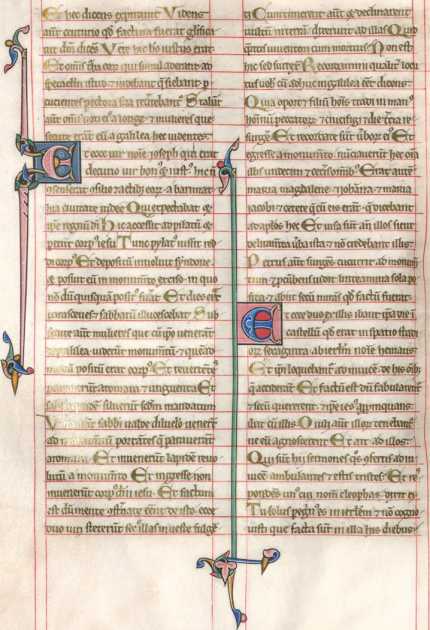 Et hec dicens expirauit Videns
aut centurio qd factum fuerat glorifica
uit dm dices Vere hic ho iustus erat
Et omis tba eor qui simul aderant ad
spectaclm istud ⁊ uidebant q fiebant p
cucientes pectora sua rtebant Stabat
aut omis noti ei a longe ⁊ mulieres que
secute erant eu a galilea hec uidentes
Et ecce uir noie ioseph qui erat
decurio uir bon ⁊ iust hic n
osenserat osilio ⁊ actib eor a barimat
hia ciuitate iudee Qui expectabat ⁊
ipe regnu di Hic accessit ad pilatu ⁊
petiit corp ihesu Tunc pylat iussit red
di corp Et depositu inuoluit syndone
⁊ posuit eu in monumto exciso in quo
no du quisqua posit fuat Et dies erat
parasceues ⁊ sabbatu illucescebat Sub
secute aut mulieres que cu ipo uenerat
de galilea uiderut monumtu ⁊ quead
modu positu erat corp Et reuertetes
parauerut aromata ⁊ unguenta Et
sabbato qde siluerut scdm mandatum
Vna aut sabbi ualde diluclo uenert
ad monumtu portates q parauerut
aromata Et inuenerut lapide reuo
lutu a monumto Et ingresse non
inuenerut corp dni iesu Et factum
est du mente ostnate eent de isto ecce
duo uiri steterut sec illas in ueste fulge
ti Cum timerent aut ⁊ declinarent
uultu in terra dixerut ad illas Quid
qritis uiuentem cum mortuis Non est
hic sed surrex Recordamini qualit locu
tus uob cu adhuc in galilea eet dicens
Quia oport filiu hois tradi in man
hominu peccator ⁊ crucifigi ⁊ die tcia re
surge Et recordate sut ūbor ei Et
egresse a monumto nuciauerut hec oma
illis undecim ⁊ ceteris omib Erat aute
maria magdalene ⁊ iohanna ⁊ maria
iacobi ⁊ cetere q cu eis erat q dicebant
ad aplos hec Et uisa sut an illos sicut
deliramta uba ista ⁊ no credebant illis
Petrus aut surges cucurrit ad monum
tum ⁊ pcubens uidit linteamina sola po
sita ⁊ abiit secu mirās qd factu fuerat
Et ecce duo ex illis ibant ipa die i
castellu qd erat in spatio stadi
oru sexaginta ab ierlm noie hemaus
Et ipi loquebant ad inuice de his oib
q acciderat Et factu est du fabularent
⁊ secu quererent ⁊ ipe ies apinquans
ibat cu illis Oculi aut illor tenebant
ne eu agnoscerent Et ait ad illos
Qui sut hii sermones qs ofertis ad in
uice ambulantes ⁊ estis tristes Et re
spondes un cui nom cleophas dixit ei
Tu solus pegrin es in ierlem ⁊ no cogno
uisti que facta sūt in illa his diebus